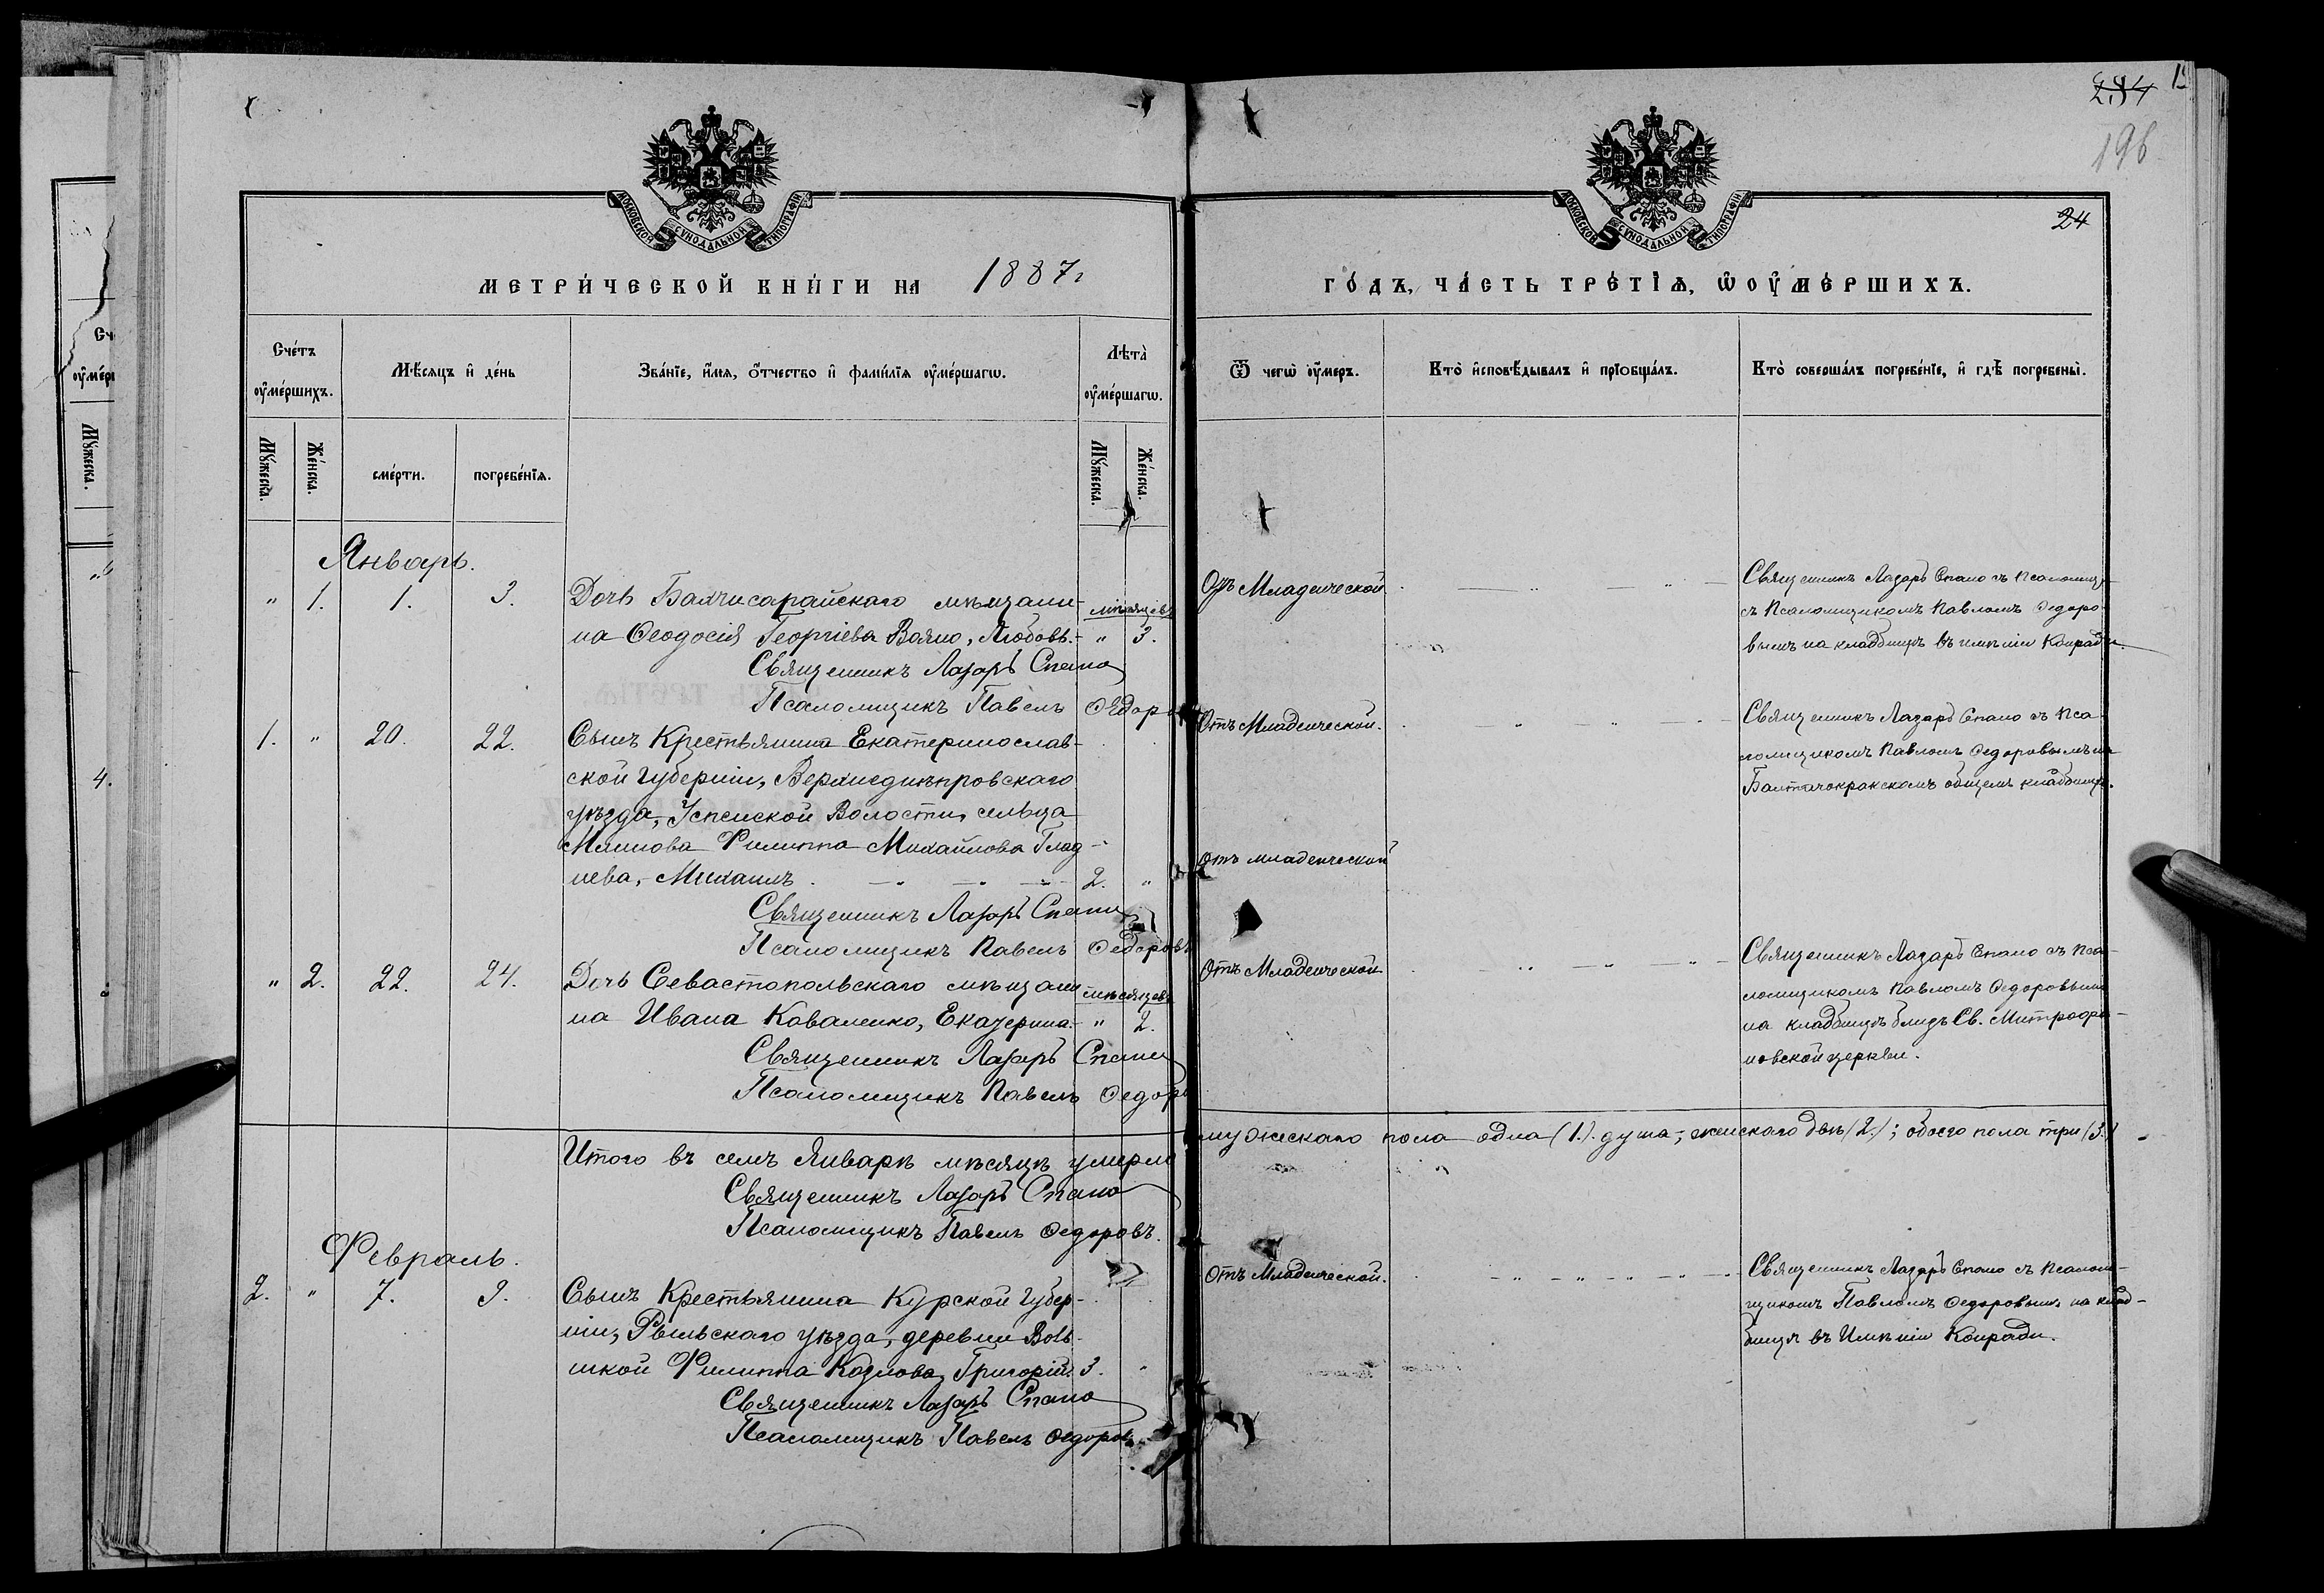 234
196
24
МОСКОВСКОЙ СѴНОДАЛЬНОЙ ТИПОГРАФІИ
МОСКОВСКОЙ СѴНОДАЛЬНОЙ ТИПОГРАФІИ
МЕТРИ́ЧЕСКОЙ КНИ́ГИ НА 1887 г
ГО́ДЪ, ЧА́СТЬ ТРЕ́ТІѦ, Ѡ ОУ҆МЕ́РШИХЪ.
Сче́тъ
оу҆ме́ршихъ.
Мѣ́сяцъ и҆ де́нь
Зва́нїе, и҆́мѧ, ѻ҆́тчество и҆ фами́лїѧ оу҆ме́ршагѡ.
Лѣта̀
оу҆ме́ршагѡ.
Ѿ чегѡ̀ оу҆́меръ.
Кто̀ и҆сповѣ́дывалъ и҆ прїобща́лъ.
Кто̀ соверша́лъ погребе́нїе, и҆ гдѣ̀ погребены̀.
Мꙋ́жеска.
Же́нска.
сме́рти.
погребе́нїѧ.
Мꙋ́жеска.
Же́нска.
Январь.
" 1. 1. 3.
Дочь Бахчисарайскаго мѣщани- мѣсяцевъ
на Ѳеодосія Георгіева Вояно, Любовь.- " 3.
Священникъ Лазарь Спано
Псаломщикъ Павелъ Ѳедоровъ
Отъ Младенческой
Священникъ Лазарь Спано съ
съ Псаломщикомъ Павломъ Ѳедоро-
вымъ на кладбищѣ въ имѣніи Конради.
1. " 20. 22.
Сынъ Крестьянина Екатеринослав-
ской губерніи, Верхнеднѣпровскаго
уѣзда, Успенской Волости, сельца
Филиппа Михайлова Глад-
нева, - Михаилъ 2. "
Священникъ Лазарь Спано
Псаломщикъ Павелъ Ѳедоровъ
Отъ Младенческой.
отъ младенческой
Священникъ Лазарь Спано съ Пса-
ломщикомъ Павломъ Ѳедоровымъ на
общемъ кладбищѣ.
" 2. 22. 24.
Дочь Севастопольскаго мѣщани- мѣсяцевъ
на Ивана Коваленко, Екатерина.- " 2.
Священникъ Лазарь Спано
Псаломщикъ Павелъ Ѳедоровъ
Отъ Младенческой
Священникъ Лазарь Спано съ Пса-
ломщикомъ Павломъ Ѳедоровымъ
на кладбищѣ близъ Св. Митрофа-
новской церкви.
Итого въ семъ Январѣ мѣсяцѣ умерло
мужескаго пола одна (1.) душа; женскаго двѣ (2.); обоего пола три (3.)
Священникъ Лазарь Спано
Псаломщикъ Павелъ Ѳедоровъ.
Февраль.
2. " 7. 9.
Сынъ Крестьянина Курской Губер-
ніи, Рыльскаго уѣзда, деревни
Филиппа Козлова, Григорій. 3. "
Священникъ Лазарь Спано
Псаломщикъ Павелъ Ѳедоровъ
Отъ Младенческой.
Священникъ Лазарь Спано съ Псалом-
щикомъ Павломъ Ѳедоровымъ на клад-
бищѣ въ Имѣніи Конради.